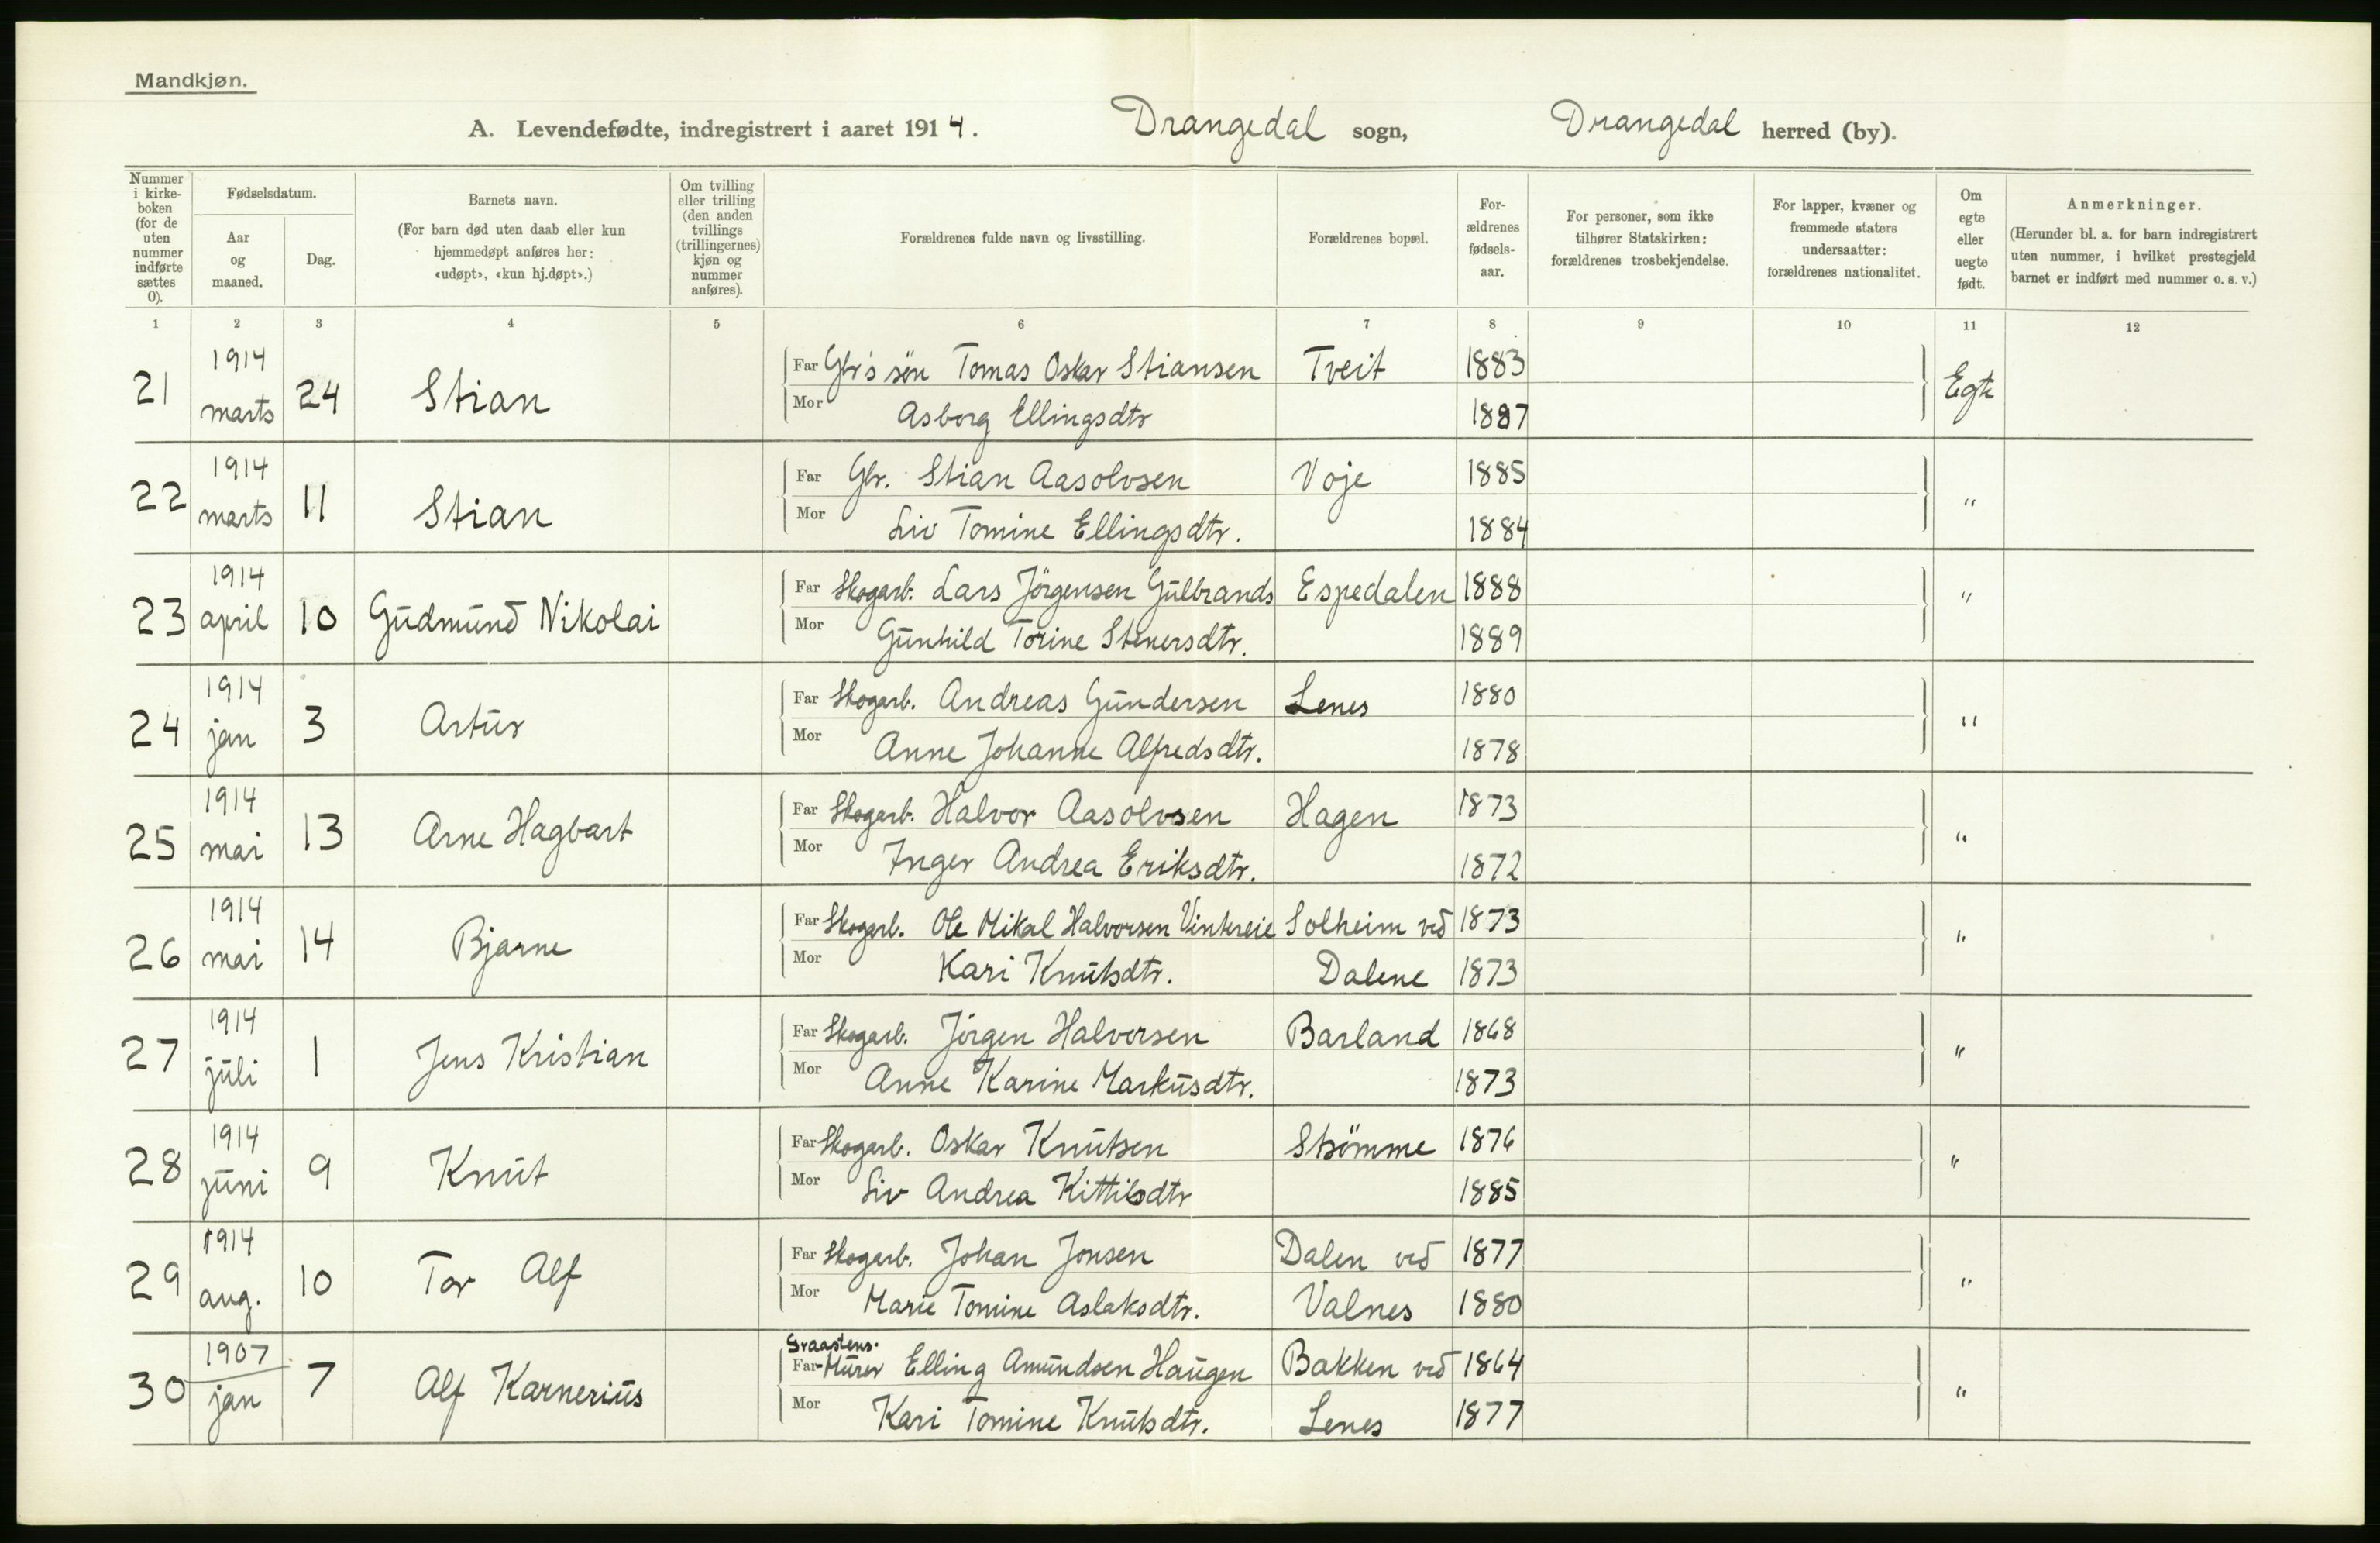 Mandkjøn.
A. Levendefødte, indregistrert i aaret 1914. Drangedal sogn, Drangedal herred (by).
Nummer i kirke-boken (for de uten nummer indførte sættes 0).
Fødselsdatum.
Aar og maaned.
Dag.
Barnets navn.
(For barn død uten daab eller kun hjemmedøpt anføres her: «udøpt», «kun hj.døpt».)
Om tvilling eller trilling (den anden tvillings (trillingernes) kjøn og nummer anføres).
Forældrenes fulde navn og livsstilling.
Forældrenes bopæl.
For-ældrenes fødsels-aar.
For personer, som ikke tilhører Statskirken: forældrenes trosbekjendelse.
For lapper, kvæner og fremmede staters undersaatter: forældrenes nationalitet.
Om egte eller uegte født.
Anmerkninger.
(Herunder bl. a. for barn indregistrert uten nummer, i hvilket prestegjeld barnet er indført med nummer o. s. v.)
1 2 3 4 5 6 7 8 9 10 11 12
1914 Far Gbr's søn Tomas Oskar Stiansen Tveit 1883
21 marts 24 Stian Egte
Mor Asborg Ellingsdtr 1887
1914 Far Gbr. Stian Aasolvsen Voje 1885
22 marts 11 Stian "
Mor Liv Tomine Ellingsdtr. 1884
1914 Far Skogarb. Lars Jörgensen Gulbrands Espedalen 1888
23 april 10 Gudmund Nikolai "
Mor Gunhild Torine Stenersdtr. 1889
1914 Far Skogarb. Andreas Gundersen Lenes 1880
24 jan 3 Artur "
Mor Anne Johanne Alfredsdtr. 1878
1914 Far Skogarb. Halvor Aasolvsen Hagen 1873
25 mai 13 Arne Hagbart "
Mor Inger Andrea Eriksdtr. 1872
1914 Far Skogarb. Ole Mikal Halvorsen Solheim ved 1873
26 mai 14 Bjarne "
Mor Kari Knutsdtr. Dalene 1873
1914 Far Skogarb. Jörgen Halvorsen Barland 1868
27 juli 1 Jens Kristian "
Mor Anne Karine Markusdtr. 1873
1914 Far Skogarb. Oskar Knutsen Strömme 1876
28 juni 9 Knut "
Mor Liv Andrea Kittilsdtr 1885
1914 Far Skogarb. Johan Jonsen Dalen ved 1877
29 aug. 10 Tor Alf "
Mor Marie Tomine Aslaksdtr. Valnes 1880
Graastens-
1907 Far Murer Elling Amundsen Haugen Bakken ved 1864
30 jan 7 Alf Karnerius "
Mor Kari Tomine Knutsdtr. Lenes 1877